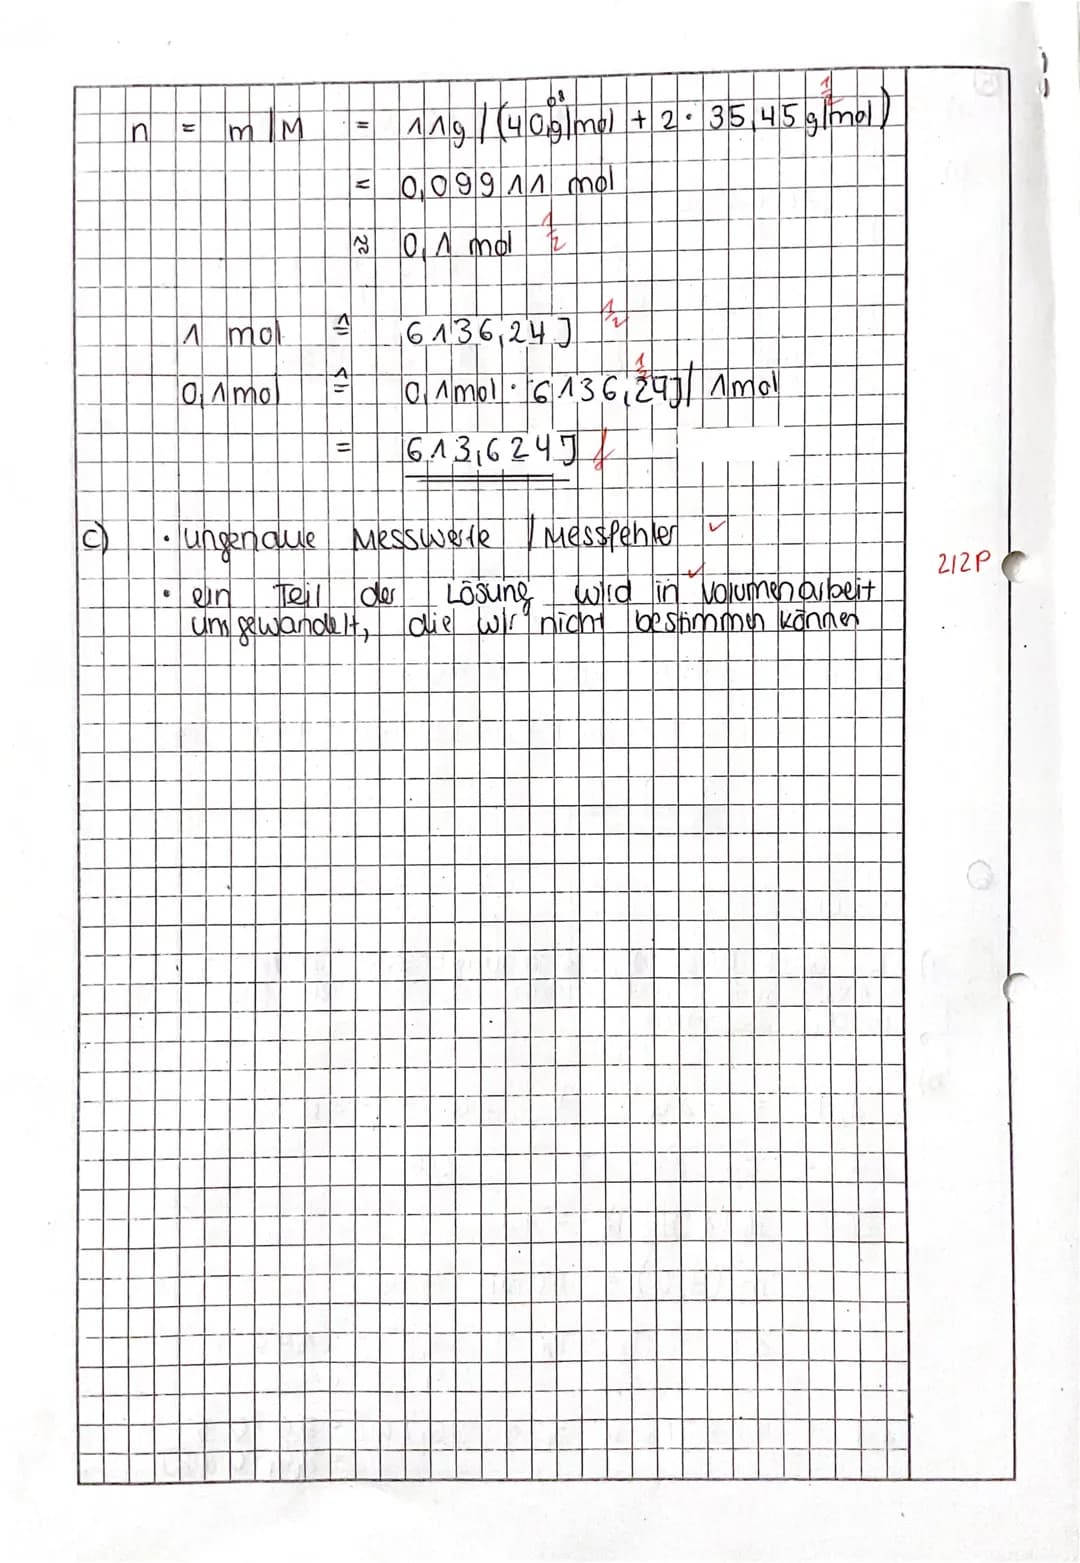 n = m/M = 11g/(40,08g/mol + 2· 35,45 g/mol) 1/2
= 0,09911 mol
≈ 0,1 mol 1/2
1 mol ≙ 6136,24J 1/2
0,1mol ≙ 0,1mol · 6136,24J/1mol 1/2
= 613,624J f
c) · ungenaue Messwerte / Messfehler ✓
· ein Teil der Lösung wird in Volumenarbeit ✓ 2/2P
umgewandelt, die wir nicht bestimmen können